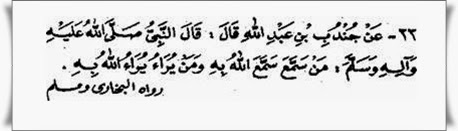 ٢٢- عَنْ جُنْدُبِ بْنِ عَبْدِ اللهِ قَالَ : قَالَ النَّبِيُّ صَلَّى اللهُ عَلَيْهِ
وَآلِهِ وَسَلَّمَ : مَنْ سَمَّعَ سَمَّعَ اللهُ بِهِ وَمَنْ يُرَاءُ يُرَاءُ اللهُ بِهِ .
رواه البخارى ومسلم